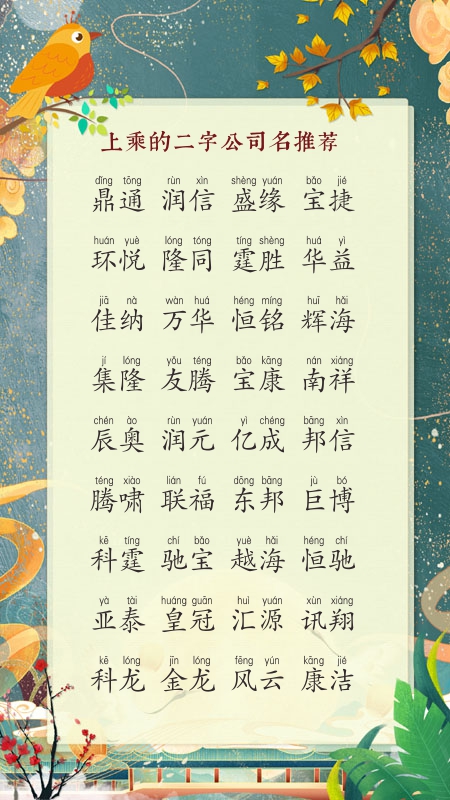 上乘的二字公司名推荐
dǐng tōng rùn xìn shèng yuán bǎo jié
鼎通 润信 盛缘 宝捷
huán yuè lóng tóng tíng shèng huá yì
环悦 隆同 霆胜 华益
jiā nà wàn huá héng míng huī hǎi
佳纳 万华 恒铭 辉海
jí lóng yǒu téng bǎo kāng nán xiáng
集隆 友腾 宝康 南祥
chén ào rùn yuán yì chéng bāng xìn
辰奥 润元 亿成 邦信
téng xiào lián fú dōng bāng jù bó
腾啸 联福 东邦 巨博
kē tíng chí bǎo yuè hǎi héng chí
科霆 驰宝 越海 恒驰
yà tài huáng guān huì yuán xùn xiáng
亚泰 皇冠 汇源 讯翔
kē lóng jīn lóng fēng yún kāng jié
科龙 金龙 风云 康洁